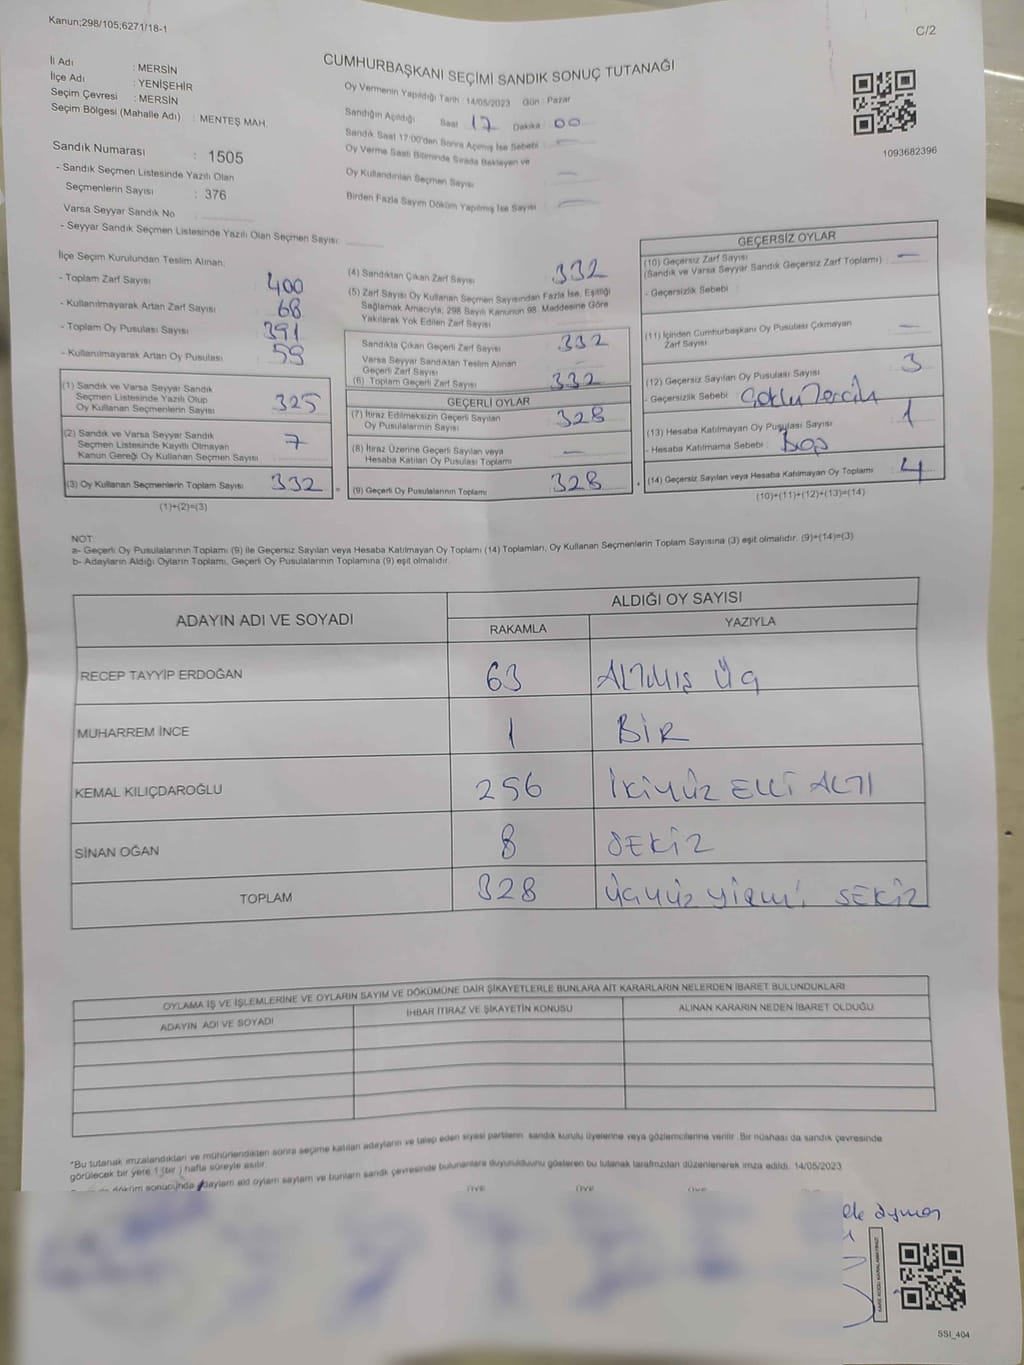 Kanun;298/105;6271/18-1
C/2
CUMHURBAŞKANI SEÇİMİ SANDIK SONUÇ TUTANAĞI
İl Adı : MERSİN
İlçe Adı : YENİŞEHİR
Seçim Çevresi : MERSİN
Seçim Bölgesi (Mahalle Adı) : MENTEŞ MAH.
Sandık Numarası : 1505
- Sandık Seçmen Listesinde Yazılı Olan
Seçmenlerin Sayısı : 376
Varsa Seyyar Sandık No
- Seyyar Sandık Seçmen Listesinde Yazılı Olan Seçmen Sayısı:
Oy Vermenin Yapıldığı Tarih : 14/05/2023 Gün : Pazar
Sandığın Açıldığı Saat 17 Dakika 00
Sandık Saat 17:00'den Sonra Açılmış İse Sebebi : —
Oy Verme Saati Bitiminde Sırada Bekleyen ve
Oy Kullandırılan Seçmen Sayısı —
Birden Fazla Sayım Döküm Yapılmış İse Sayısı —
1093682396
İlçe Seçim Kurulundan Teslim Alınan;
- Toplam Zarf Sayısı : 400
- Kullanılmayarak Artan Zarf Sayısı : 68
- Toplam Oy Pusulası Sayısı : 391
- Kullanılmayarak Artan Oy Pusulası : 59
(1) Sandık ve Varsa Seyyar Sandık
Seçmen Listesinde Yazılı Olup
Oy Kullanan Seçmenlerin Sayısı : 325
(2) Sandık ve Varsa Seyyar Sandık
Seçmen Listesinde Kayıtlı Olmayan
Kanun Gereği Oy Kullanan Seçmen Sayısı : 7
(3) Oy Kullanan Seçmenlerin Toplam Sayısı : 332 =
(1)+(2)=(3)
(4) Sandıktan Çıkan Zarf Sayısı : 332
(5) Zarf Sayısı Oy Kullanan Seçmen Sayısından Fazla İse, Eşitliği
Sağlamak Amacıyla; 298 Sayılı Kanunun 98. Maddesine Göre
Yakılarak Yok Edilen Zarf Sayısı
Sandıkta Çıkan Geçerli Zarf Sayısı : 332
Varsa Seyyar Sandıktan Teslim Alınan
Geçerli Zarf Sayısı : —
(6) Toplam Geçerli Zarf Sayısı : 332
GEÇERLİ OYLAR
(7) İtiraz Edilmeksizin Geçerli Sayılan
Oy Pusulalarının Sayısı : 328
(8) İtiraz Üzerine Geçerli Sayılan veya
Hesaba Katılan Oy Pusulası Toplamı : —
(9) Geçerli Oy Pusulalarının Toplamı : 328 +
GEÇERSİZ OYLAR
(10) Geçersiz Zarf Sayısı
(Sandık ve Varsa Seyyar Sandık Geçersiz Zarf Toplamı) : —
- Geçersizlik Sebebi :
(11) İçinden Cumhurbaşkanı Oy Pusulası Çıkmayan
Zarf Sayısı : —
(12) Geçersiz Sayılan Oy Pusulası Sayısı : 3
- Geçersizlik Sebebi : Çoklu Tercih
(13) Hesaba Katılmayan Oy Pusulası Sayısı : 1
- Hesaba Katılmama Sebebi : Boş
(14) Geçersiz Sayılan veya Hesaba Katılmayan Oy Toplamı : 4
(10)+(11)+(12)+(13)=(14)
NOT:
a- Geçerli Oy Pusulalarının Toplamı (9) ile Geçersiz Sayılan veya Hesaba Katılmayan Oy Toplamı (14) Toplamları, Oy Kullanan Seçmenlerin Toplam Sayısına (3) eşit olmalıdır. (9)+(14)=(3)
b- Adayların Aldığı Oyların Toplamı, Geçerli Oy Pusulalarının Toplamına (9) eşit olmalıdır.
ADAYIN ADI VE SOYADI ALDIĞI OY SAYISI
RAKAMLA YAZIYLA
RECEP TAYYİP ERDOĞAN 63 ALTMIŞ ÜÇ
MUHARREM İNCE 1 BİR
KEMAL KILIÇDAROĞLU 256 İKİYÜZ ELLİ ALTI
SİNAN OĞAN 8 SEKİZ
TOPLAM 328 ÜÇYÜZ YİRMİ SEKİZ
OYLAMA İŞ VE İŞLEMLERİNE VE OYLARIN SAYIM VE DÖKÜMÜNE DAİR ŞİKAYETLERLE BUNLARA AİT KARARLARIN NELERDEN İBARET BULUNDUKLARI
ADAYIN ADI VE SOYADI İHBAR İTİRAZ VE ŞİKAYETİN KONUSU ALINAN KARARIN NEDEN İBARET OLDUĞU
*Bu tutanak imzalandıktan ve mühürlendikten sonra seçime katılan adayların ve talep eden siyasi partilerin sandık kurulu üyelerine veya gözlemcilerine verilir. Bir nüshası da sandık çevresinde
görülecek bir yere 1 (bir) hafta süreyle asılır.
döküm sonucunda adayların oyların sayları ve bunların sandık çevresinde bulunanlara duyurulduğunu gösteren bu tutanak tarafımızdan düzenlenerek imza edildi. 14/05/2023
ÜYE ÜYE ÜYE
SSİ_404